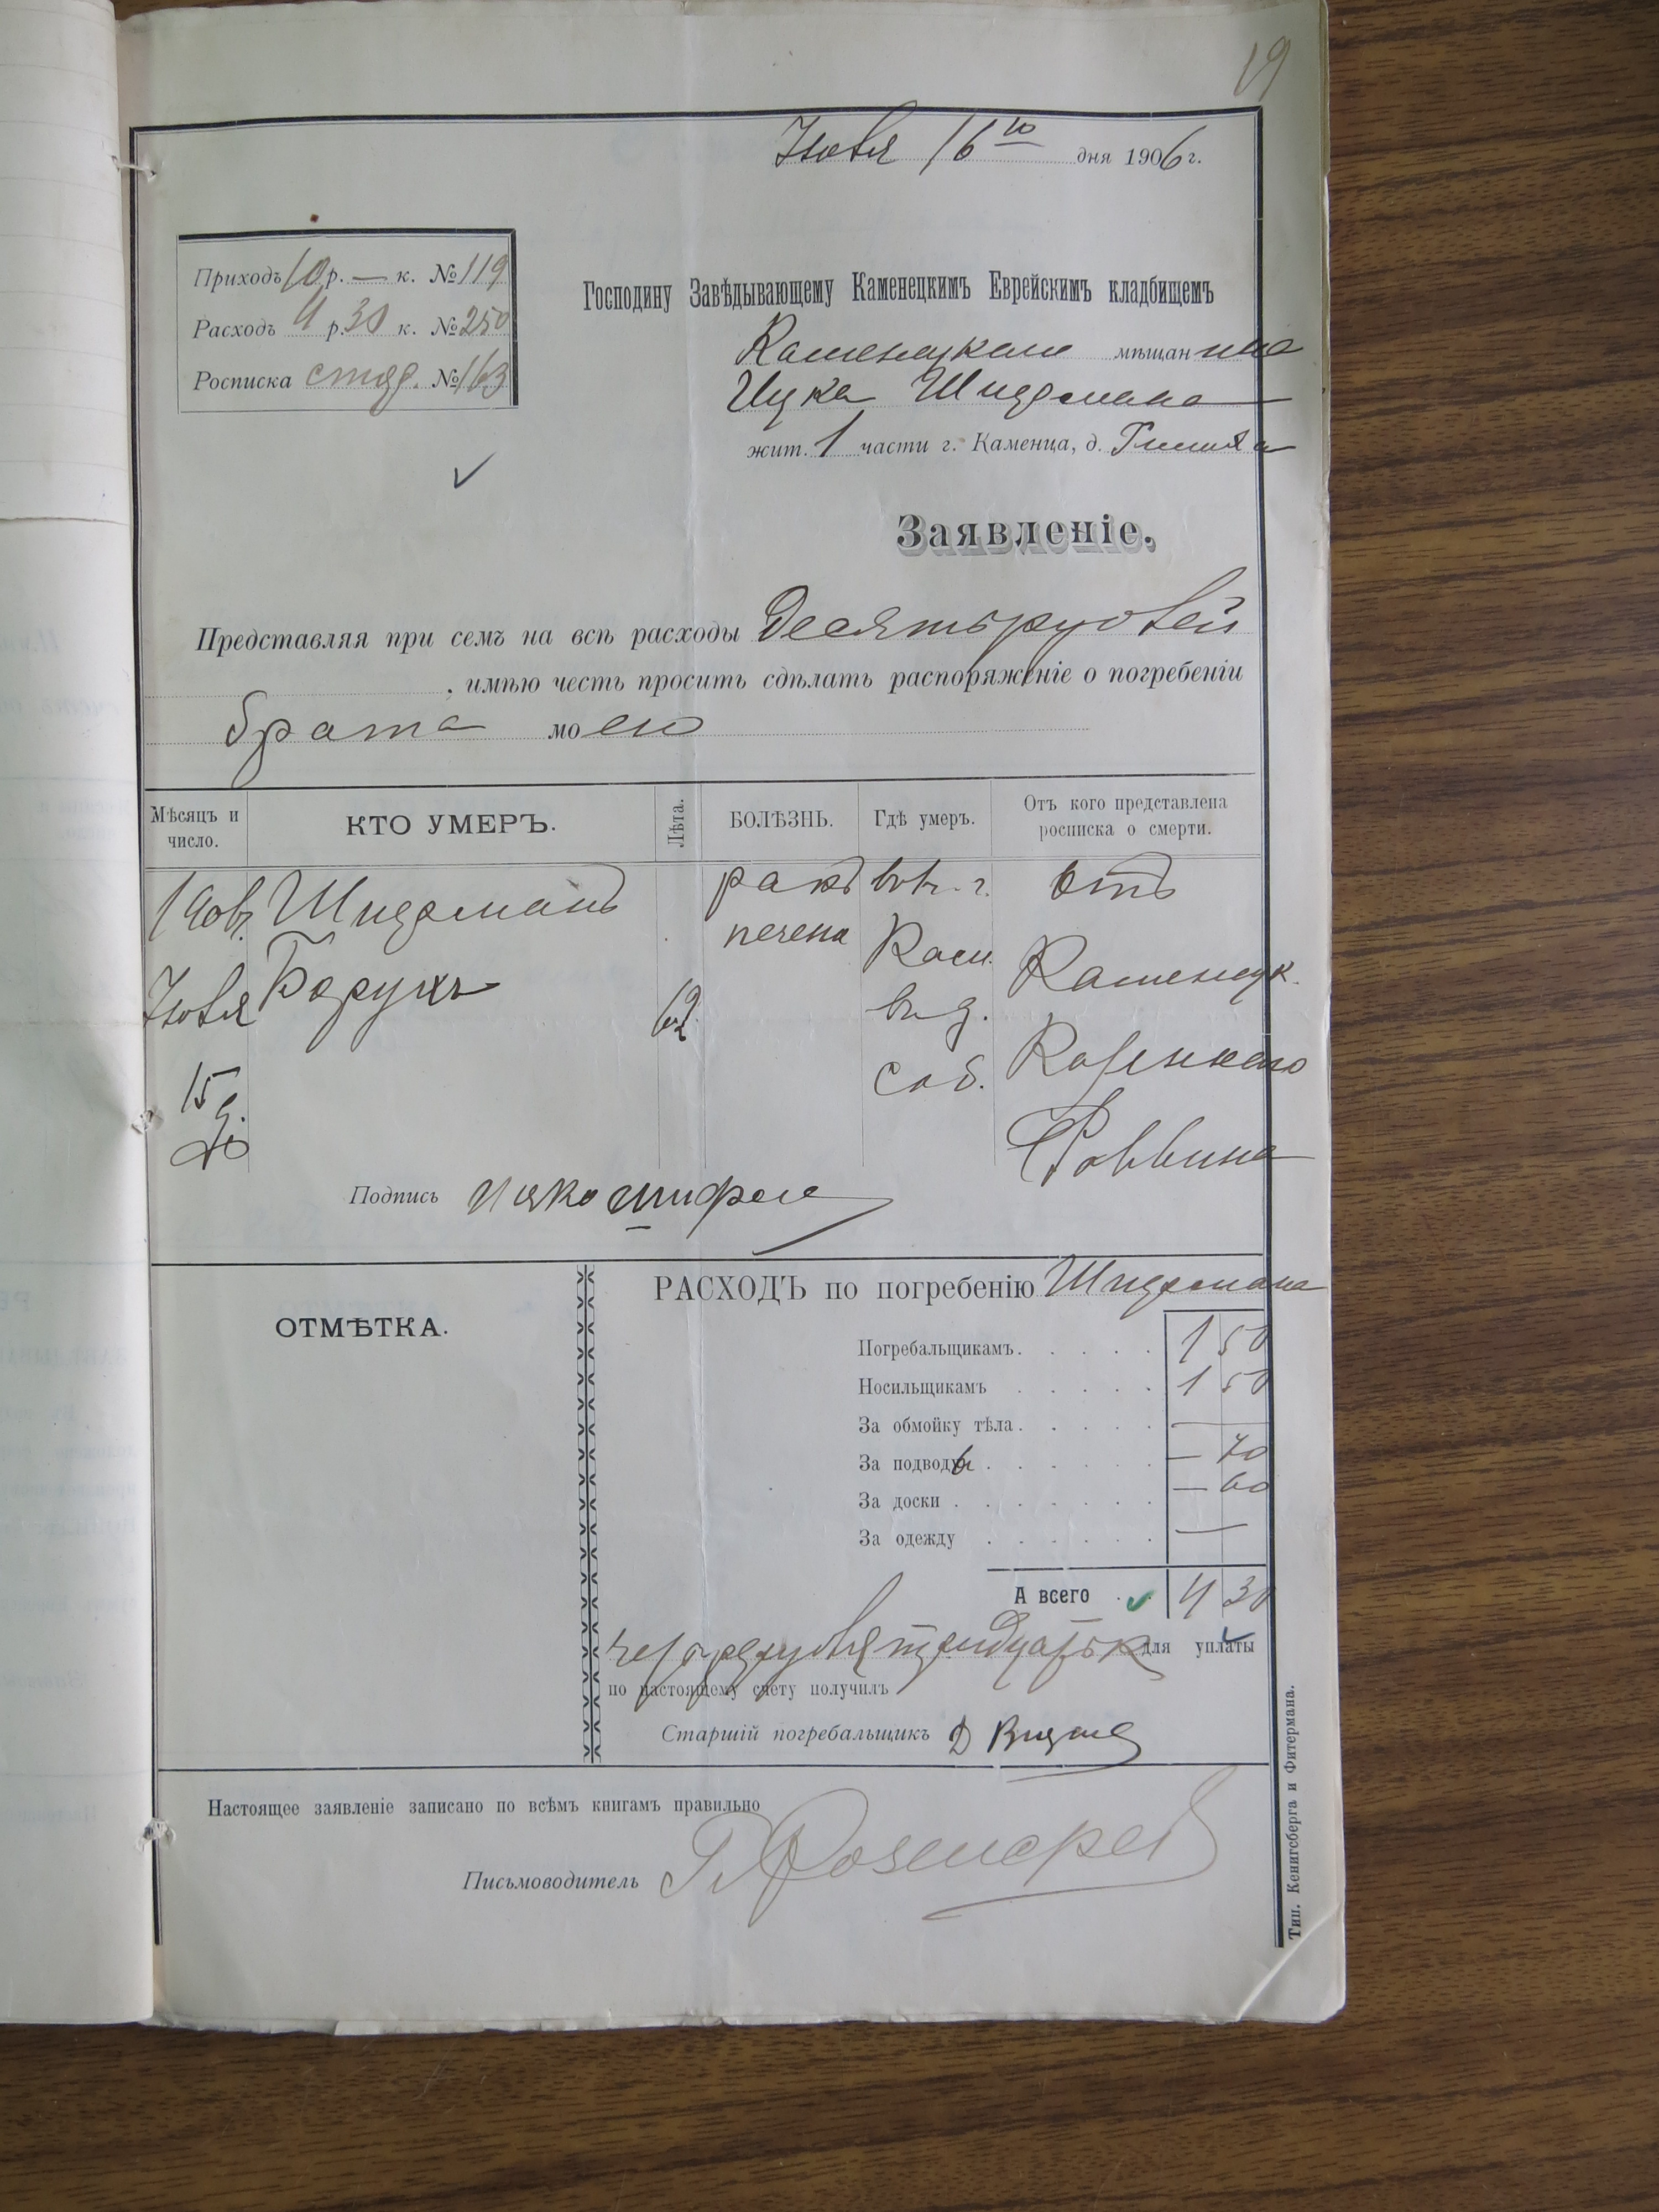 19
Июля 16го дня 1906 г.
Приходъ 10 р. — к. № 119
Расходъ 4 р. 30 к. № 250
Росписка № 163
Господину Завѣдывающему Каменецкимъ Еврейскимъ кладбищемъ
мѣщанина
Ицка Шидрмана
жит. 1 части г. Каменца, д.
Заявленіе.
Представляя при семъ на всѣ расходы Десять рублей
, имѣю честь просить сдѣлать распоряженіе о погребеніи
брата моего
Мѣсяцъ и число.
КТО УМЕРЪ.
Лѣта.
БОЛѢЗНЬ.
Гдѣ умеръ.
Отъ кого представлена росписка о смерти.
Июля
15 д.
Борухъ
62
ракъ
печени
въ г.
Кам.
въ д.
соб.
Отъ
Каменецк.
Казеннаго
Раввина
Подпись
РАСХОДЪ по погребенію
ОТМѢТКА.
Погребальщикамъ. 1 50
Носильщикамъ 1 50
За обмойку тѣла. —
За подводы — 70
За доски — 60
За одежду —
А всего 4 30
четыре рубля тридцать к для уплаты
по настоящему счету получилъ
Старшій погребальщикъ Д
Настоящее заявленіе записано по всѣмъ книгамъ правильно
Письмоводитель
Тип. Кенигсберга и Фитермана.